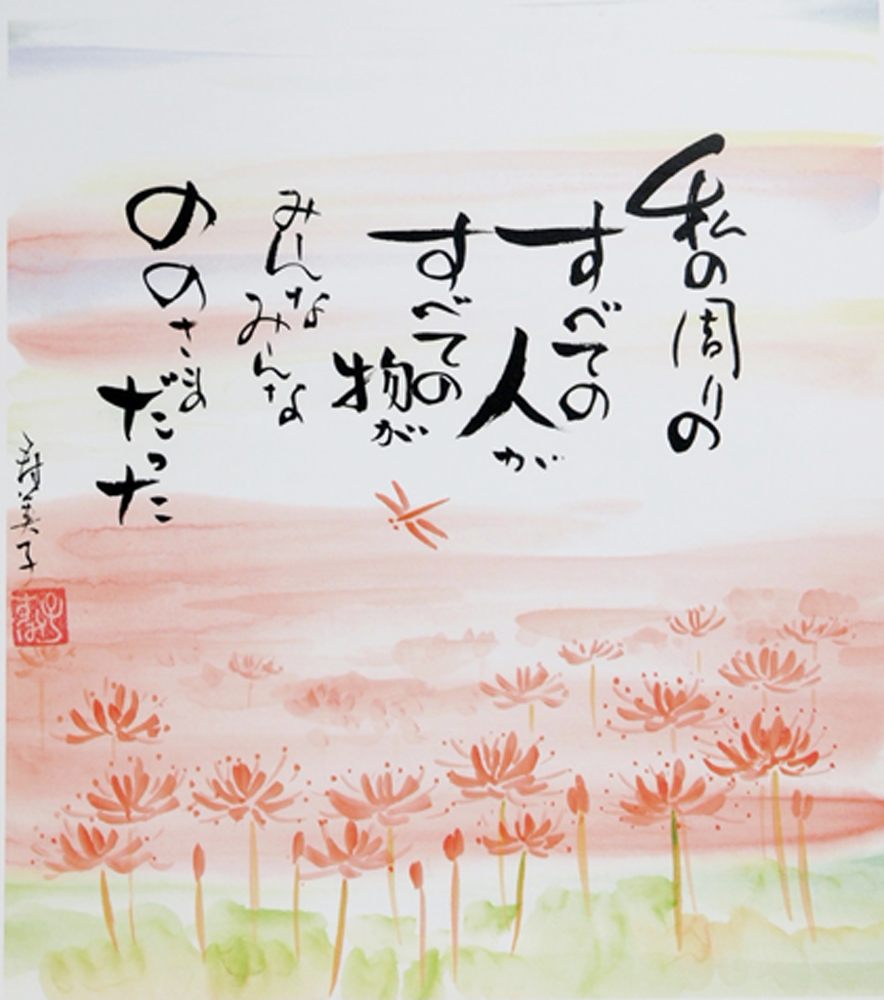 私の周りの
すべての
人が
すべての
物が
みんな
みんな
ののさま
だった